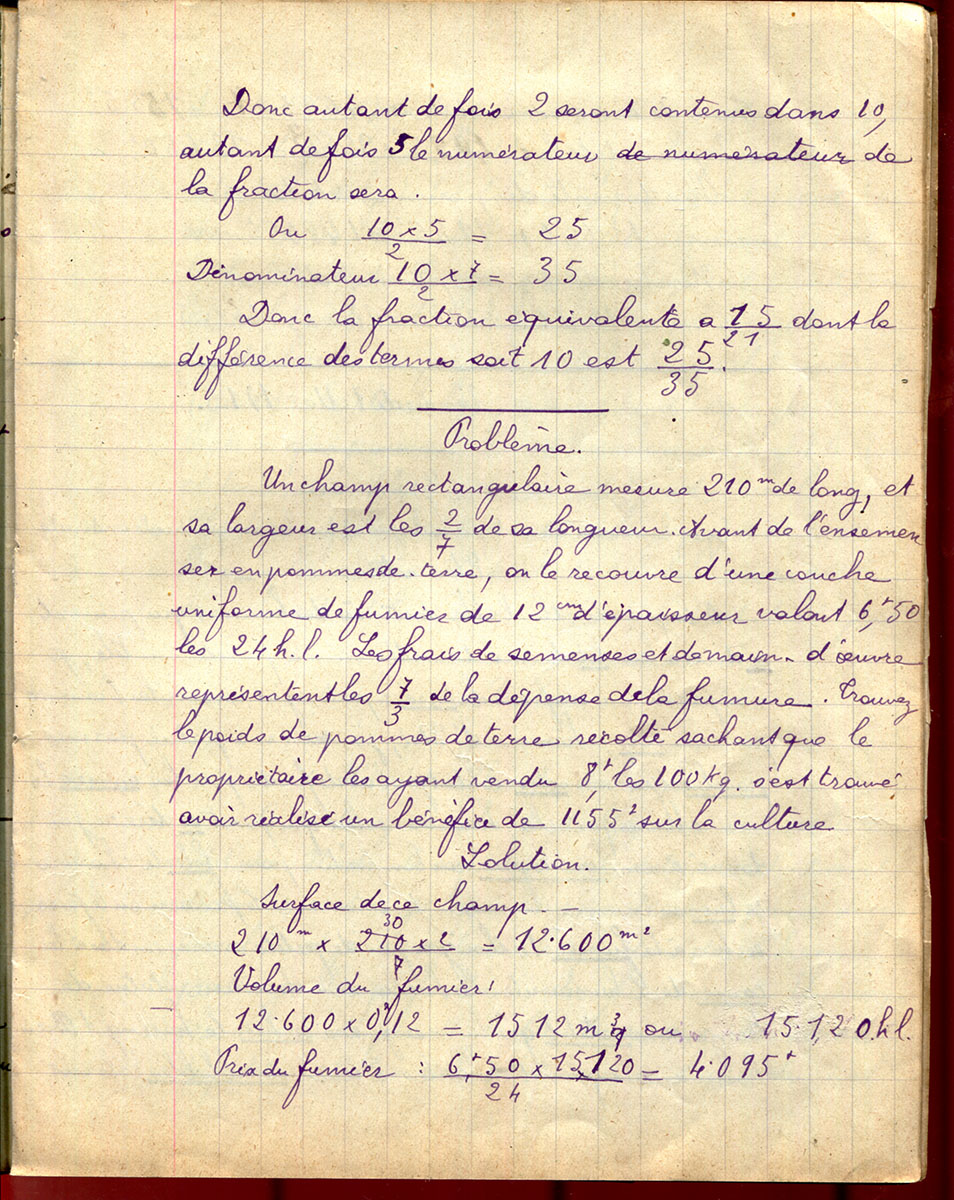 Donc autant de fois 2 seront contenus dans 10,
autant de fois 5 le numérateur de numérateur de
la fraction sera.
Ou 10 x 5 / 2 = 25
Dénominateur 10 x 7 / 2 = 35
Donc la fraction équivalente a 15/21 dont la
différence des termes soit 10 est 25/35.
Problème.
Un champ rectangulaire mesure 210 m de long, et
sa largeur est les 2/7 de sa longueur. Avant de l'ensemen
ser en pommes de-terre, on le recouvre d'une couche
uniforme de fumier de 12 cm d'épaisseur valant 6f,50
les 24 h.l. Les frais de semenses et de main-d'œuvre
représentent les 7/3 de la dépense de la fumure. Trouvez
le poids de pommes de terre récolté sachant que le
propriétaire les ayant vendu 8f, les 100 kg. s'est trouvé
avoir réalisé un bénéfice de 1155f sur la culture
Solution.
Surface de ce champ. —
30
210 m x 210 x 2 / 7 = 12.600 m²
Volume du fumier:
12.600 x 0,12 = 1512 m3 ou 15.120 h.l.
Prix du fumier : 6f,50 x 15,120 / 24 = 4.095f